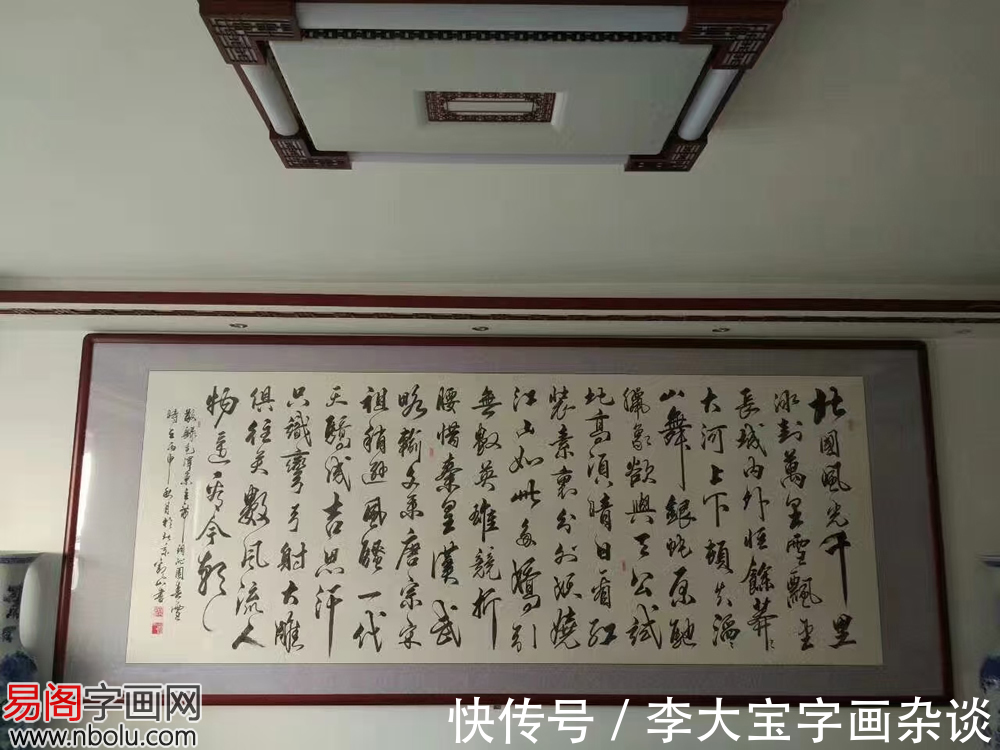 北國風光千里
冰封萬里雪飄望
長城内外惟餘莽〻
大河上下頓失滔〻
山舞銀蛇原馳
臘象欲與天公試
比高須晴日看紅
裝素裹分外妖嬈
江山如此多嬌引
無數英雄競折
腰惜秦皇漢武
略輸文采唐宗宋
祖稍遜風騷一代
天驕成吉思汗
只識彎弓射大雕
俱往矣數風流人
物還看今朝
敬錄毛澤東主席詞沁園春雪
時在丙申秋月於北京書
易阁字画网
www.nbolu.com
快传号 / 李大宝字画杂谈